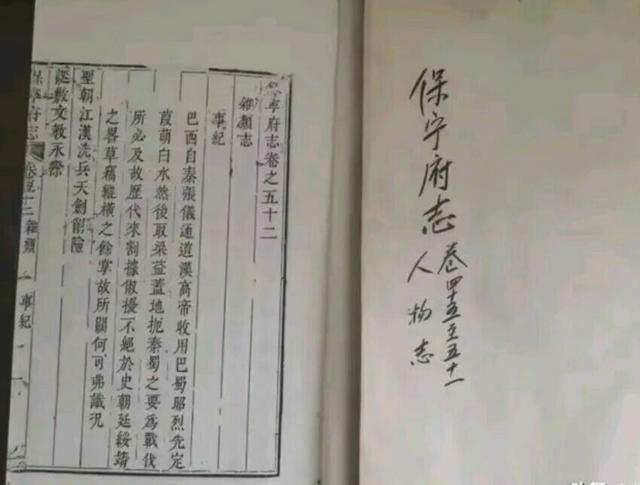 保寧府志卷之五十二
雜類志
事紀
巴西自秦張儀通道漢高帝收用巴蜀昭烈先定
葭萌白水然後取梁益蓋地扼秦蜀之要為戰伐
所必及故歷代來割據俶擾不絕於史朝廷綏靖
之畧草竊縱橫之餘掌故所關何可弗識況
聖朝江漢洗兵天劍削險
誕敷文教永
保寧府志
卷五十二 雜類 事紀 一
保宁府志 卷四十五至五十一
人物志